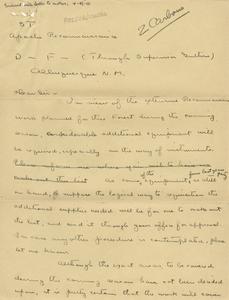 2 Carbons
S
Apache Reconnaissance
D - F - (Through Supervisor
Albuquerque N.M.
Dear Sir -
In view of the extensive Reconnaissance
work planned for this Forest during the coming
season, considerable additional equipment will
be required, especially in the way of instruments.
As some of the equipment, is still
on hand, I suppose the logical way to requisition the
additional supplies needed will be for me to make out
the list, and send it through your office for approval.
In case any other procedure is contemplated, please
let me know.
Although the exact area to be covered
during the coming season have not been decided
upon, it is pretty certain that the work will cover